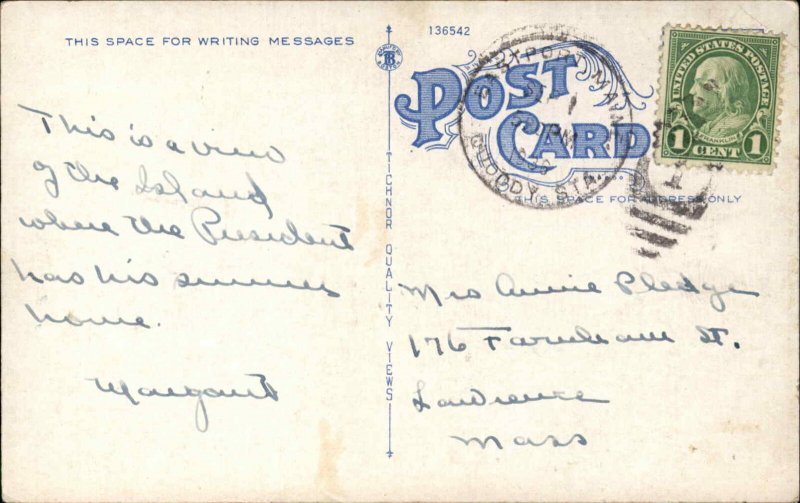 THIS SPACE FOR WRITING MESSAGES
136542
POST CARD
EASTPORT MAINE
QUODDY STA.
UNITED STATES POSTAGE
FRANKLIN
1 CENT 1
THIS SPACE FOR ADDRESS ONLY
TICHNOR QUALITY VIEWS
This is a view
of the Island
where the President
has his summer
home.
Margaret
Mrs Annie Pledge
176 Farnham St.
Lawrence
Mass